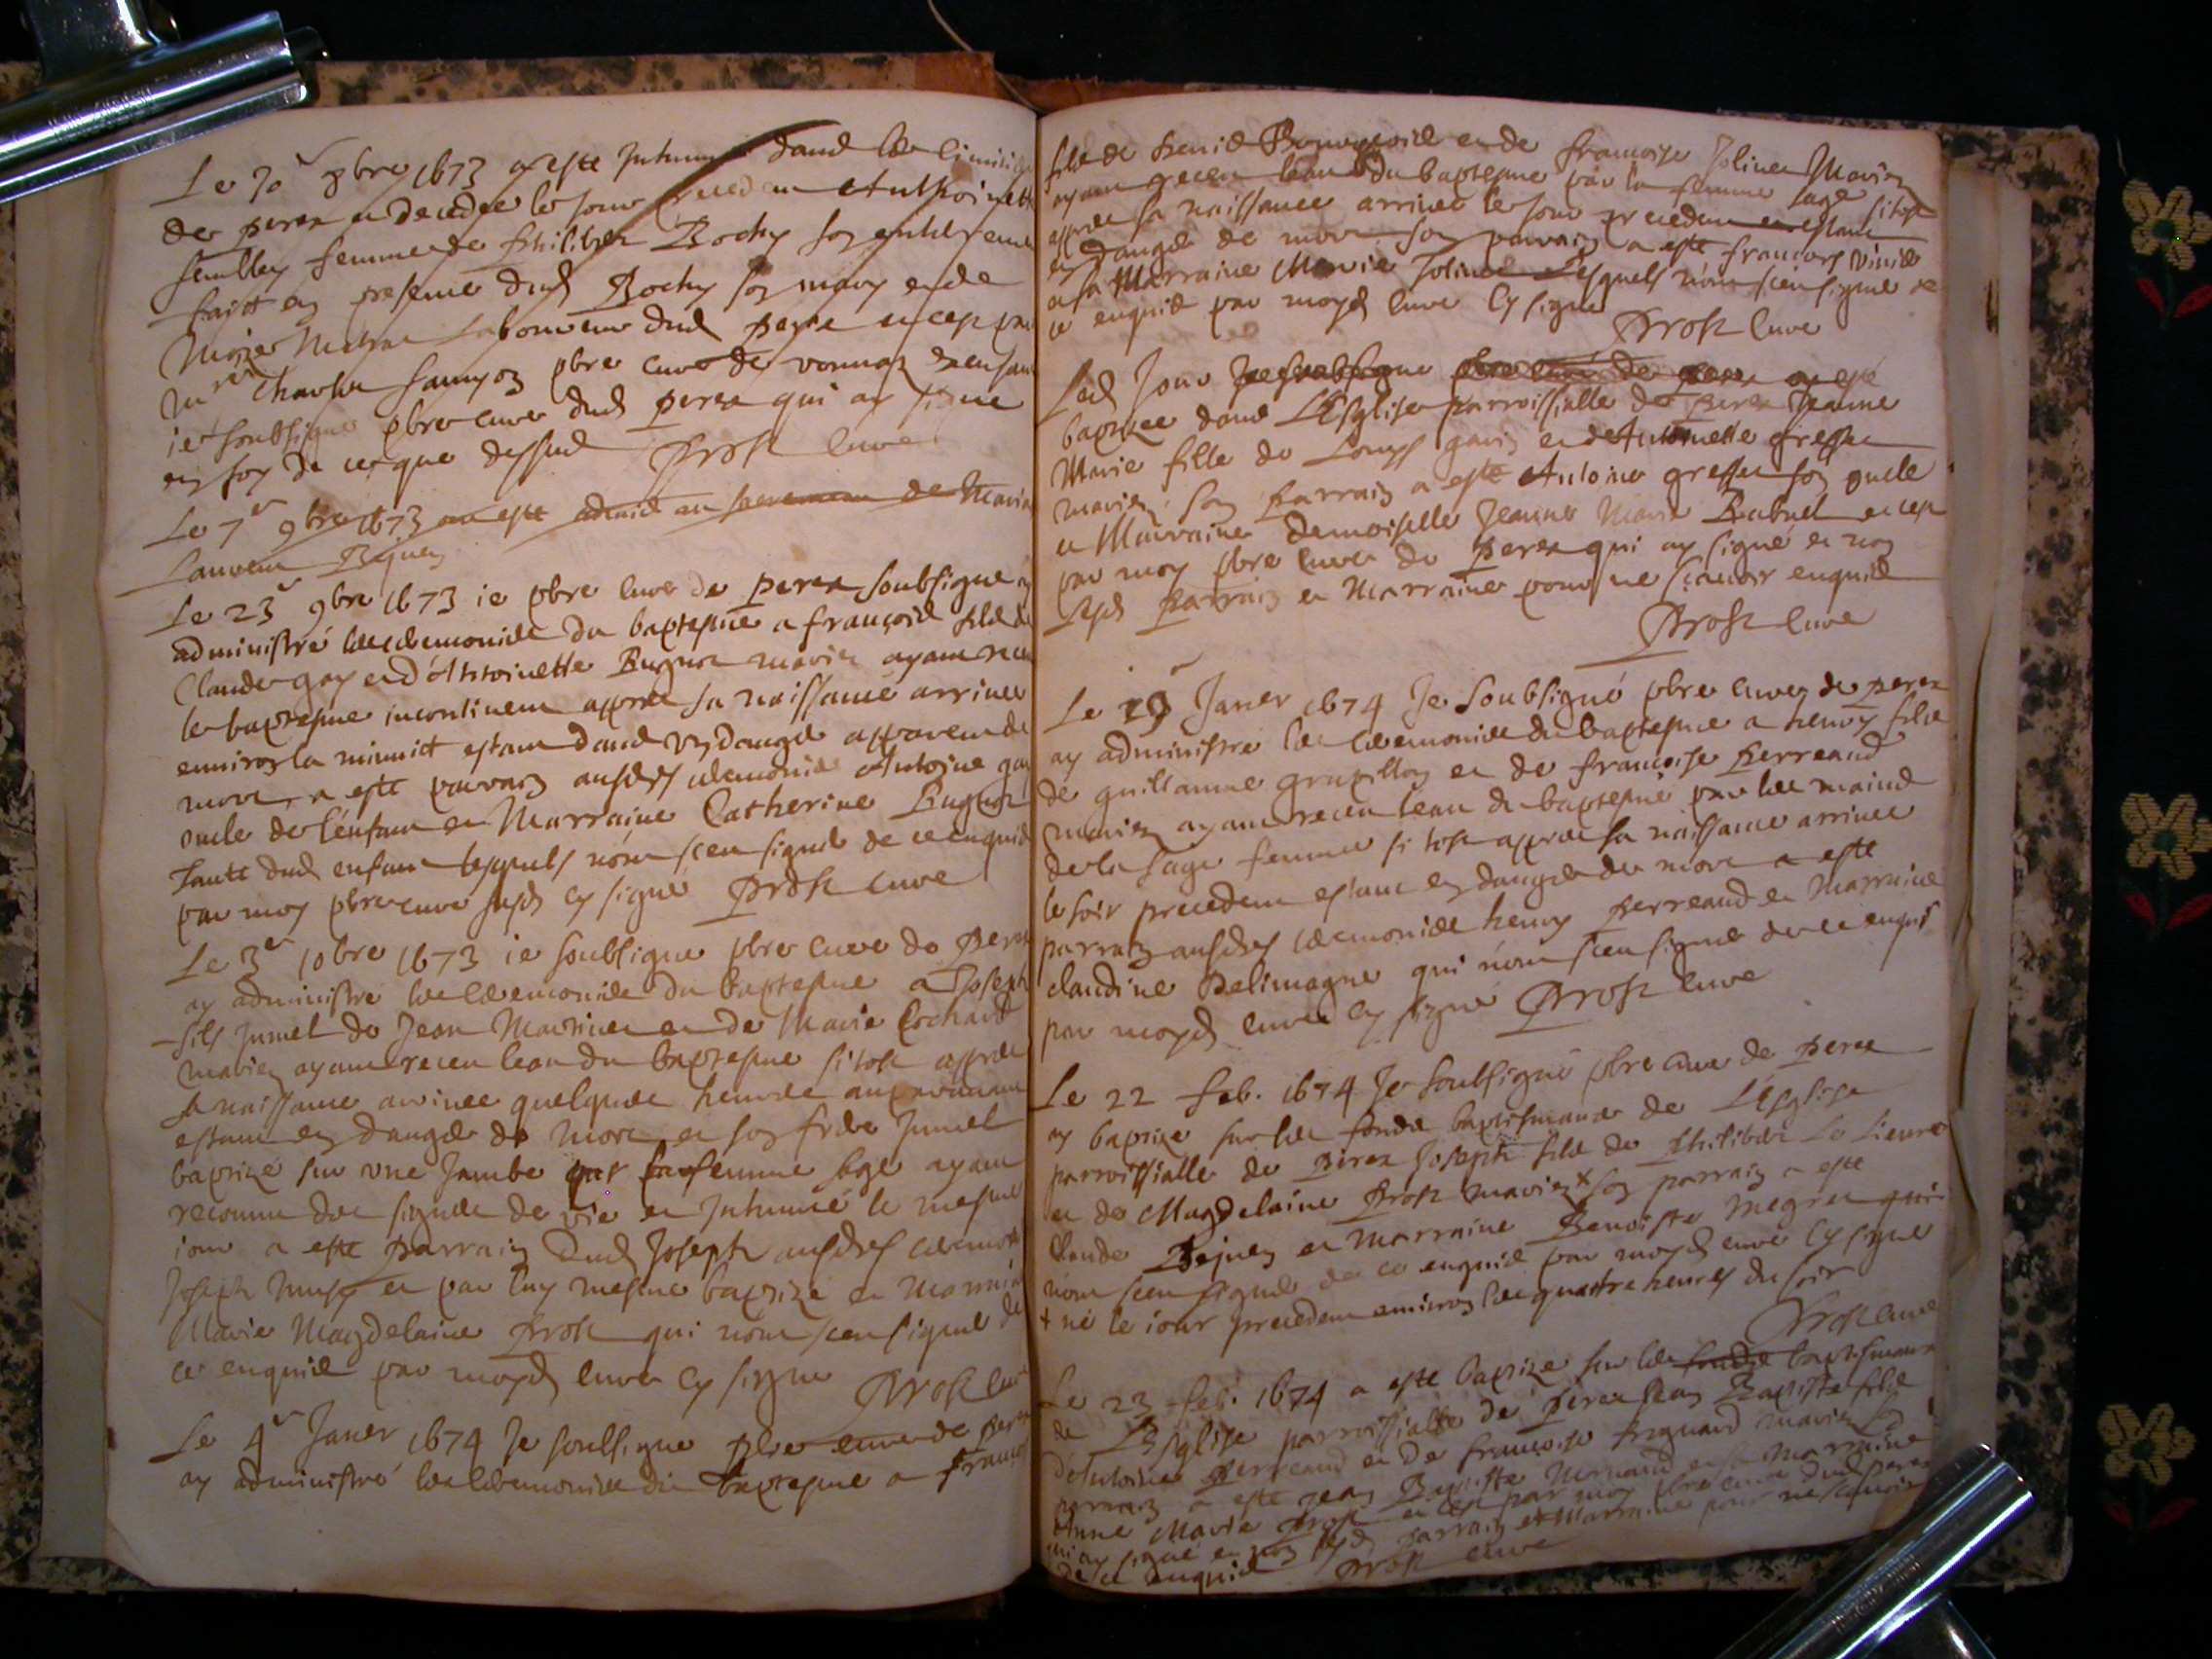 Le 30e 8bre 1673 a este Inhumee dans le Cimitiere
de perex et decedee le jour precedent Anthoinette
femme de philiber Rochy son enterrem
faict en presence dud Rochy son mary et de
Laboureur dud perex et ce par
Mre Charles pbre curé de vonnaz
ie soubsigne pbre cure dud perex qui ay signe
en foy de ce que dessus Prost curé
Le 7e 9bre 1673 ont este admis au sacrement de Maria
Laurent
Le 23e 9bre 1673 ie pbre curé de perex soubsigne ay
administré les ceremonies du baptesme a françois fils de
Claude gay et d'Anthoinette Bugnot mariez ayant receu
le baptesme incontinent apres sa naissance arrivee
environ la minuict estant dans un danger apparent de
mort, a este parrain ausdes ceremonies Antoine gay
oncle de l'enfant et Marraine Catherine Bugnot
Tante dud enfant lesquels n'ont sceu signer de ce enquis
par moy pbre curé susd cy signé Prost curé
Le 3e 10bre 1673 ie soubsigne pbre curé de Perex
ay administré les ceremonies du baptesme a Joseph
fils Jumel de Jean Mariner et de Marie Cochard
mariez ayant receu leau du baptesme si tost apres
sa naissance arrivee quelques heures auparavant
estant en danger de mort et son frere Jumel
baptizé sur une Jambe par femme sage ayant
reconnu des signes de vie et Inhumé le mesme
iour a este parrain dud Joseph ausdes ceremonies
Joseph et par luy mesme baptizé et Marraine
Marie Magdelaine Prost qui n'ont sceu signer de
ce enquis par moyd curé cy signe Prost curé
Le 4e Janer 1674 Je soubsigne pbre curé de perex
ay administré les ceremonies du baptesme a françois
fils de Denis Bourgeois et de francoise Joliner Mariez
ayant receu leau du baptesme par la femme sage si tost
apres sa naissance arrivee le jour precedent estant
en danger de mort son parrain a este francois
et sa Marraine Marie Joliner lesquels n'ont sceu signer de
ce enquis par moyd curé cy signe Prost curé
Led Jour Je soubsigne pbre curé de perex ay este
baptizee dans L'Esglise parroissialle de Perex Jeanne
Marie fille de Louys gavin et de Antoinette gressen
mariez, son parrain a este Antoine gressen son oncle
et Marraine demoiselle Jeanne Marie Rabuel et ce
par moy pbre curé de perex qui ay signé et non
lesds parrain et Marraine pour ne scavoir enquis
Prost curé
Le 19e Janer 1674 Je soubsigné pbre curé de perex
ay administre les ceremonies du baptesme a henry fils
de guillaume grapillon et de francoise perreaud
mariez ayant receu leau du baptesme par les mains
de la sage femme si tost apres sa naissance arrivee
le soir precedent estant en danger de mort a este
parrain ausdes ceremonies henry perreaud et Marraine
claudine Delimagne qui n'ont sceu signer de ce enquis
par moyd curé cy signé Prost curé
Le 22 feb. 1674 Je soubsigné pbre curé de perex
ay baptize sur les fonds baptismaux de L'Esglise
parroissialle de Perex Joseph fils de philiber Le Lieure
et de Magdelaine Prost mariez + son parrain a este
Claude Bejuen et Marraine Benoiste Megret qui
n'ont sceu signer de ce enquis par moyd curé cy signe
+ né le iour precedent environ les quattre heures du soir
Prost curé
Le 23 feb. 1674 a este baptize sur les fonds baptismaux
de L'Esglise parroissialle de perex Jean Baptiste fils
d'Antoine perreaud et de francoise frignard mariez
parrain a este Jean Baptiste et sa Marraine
Anne Marie Prost et ce par moy pbre curé dud perex
qui ay signé et non lesds parrain et Marraine pour ne scavoir
de ce enquis Prost curé